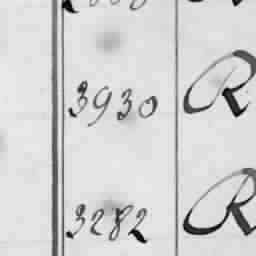 3930 R
3282 R